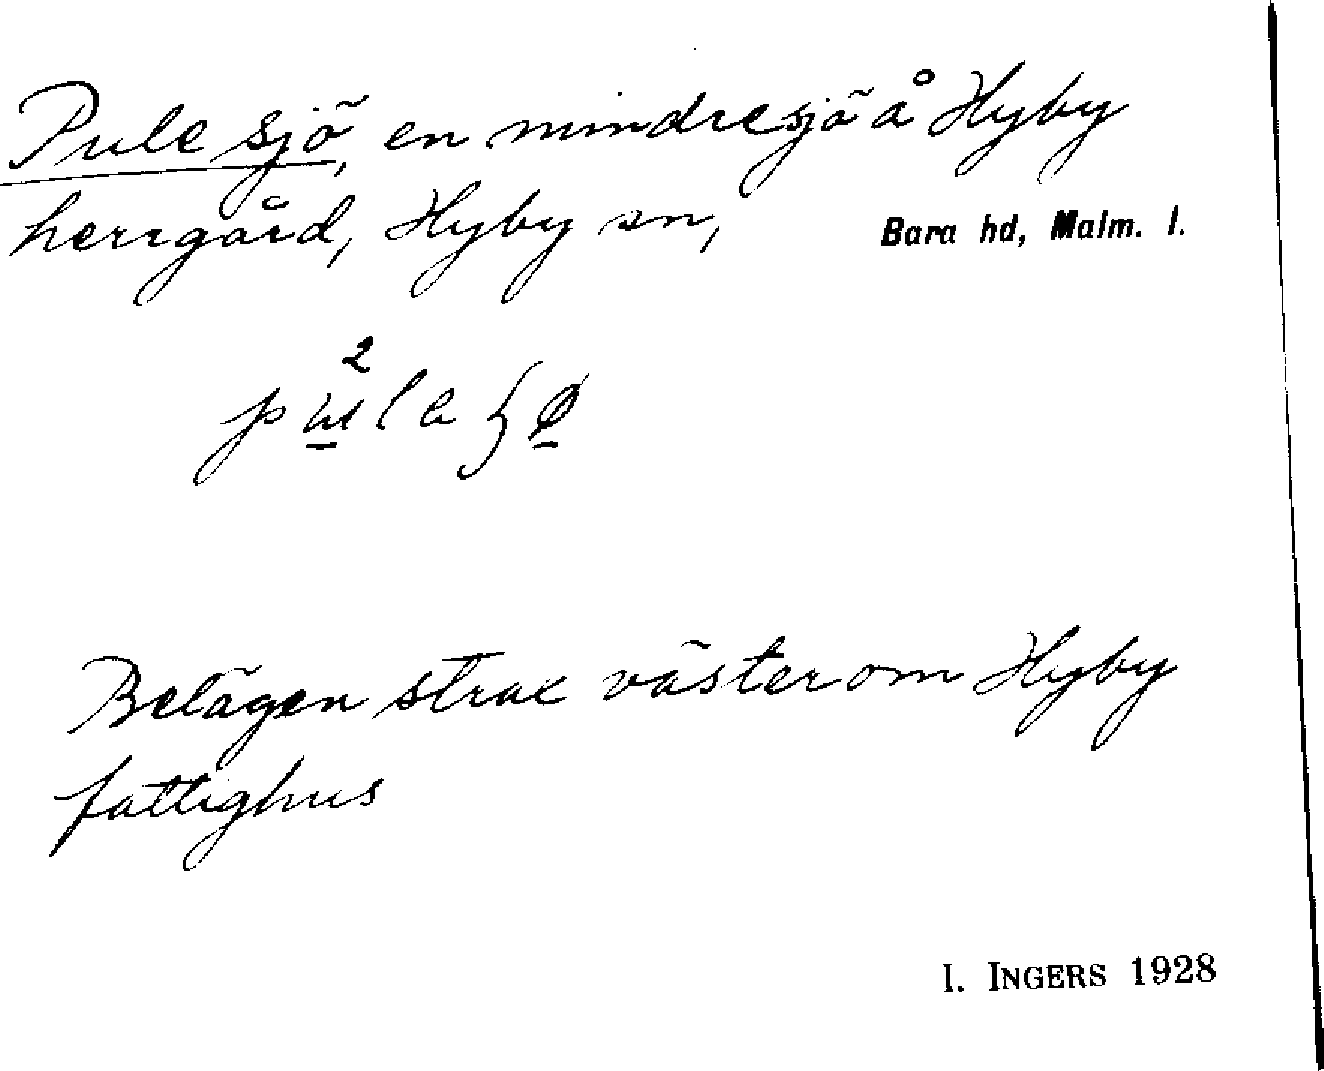 Pule sjö, en mindre sjö å Hyby
herrgård, Hyby sn, Bara hd, Malm. l.
Belägen strax väster om Hyby
fattighus
I. INGERS 1928